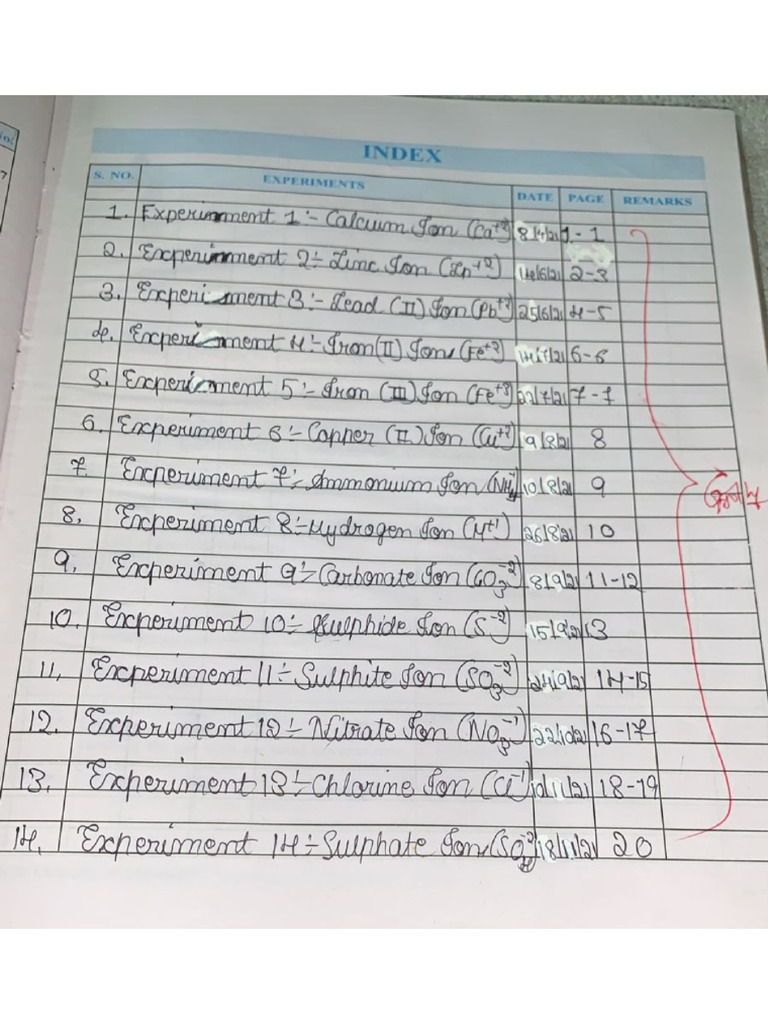 INDEX
S. NO. EXPERIMENTS DATE PAGE REMARKS
1. Experimnment 1:- Calcium Ion (Ca⁺²) 1-1
2. Experimnment 2:- Zinc Ion (Zn⁺²) 14/6/21 2-3
3. Experiment 3:- Lead (II) Ion (Pb⁺²) 25/6/21 4-5
4. Experiment 4:- Iron (II) Ion (Fe⁺²) 6-6
5. Experiment 5:- Iron (III) Ion (Fe⁺³) 22/7/21 7-7
6. Experiment 6:- Copper (II) Ion (Cu⁺²) 9/8/21 8
7. Experiment 7:- Ammonium Ion 10/8/21 9
8. Experiment 8:- Hydrogen Ion (H⁺¹) 26/8/21 10
9. Experiment 9:- Carbonate Ion (CO₃⁻²) 8/9/21 11-12
10. Experiment 10:- Sulphide Ion (S⁻²) 15/9/21 13
11. Experiment 11:- Sulphite Ion (SO₃⁻²) 24/9/21 14-15
12. Experiment 12:- Nitrate Ion (NO₃⁻¹) 22/10/21 16-17
13. Experiment 13:- Chlorine Ion (Cl⁻¹) 10/11/21 18-19
14. Experiment 14:- Sulphate Ion (SO₄⁻²) 18/11/21 20